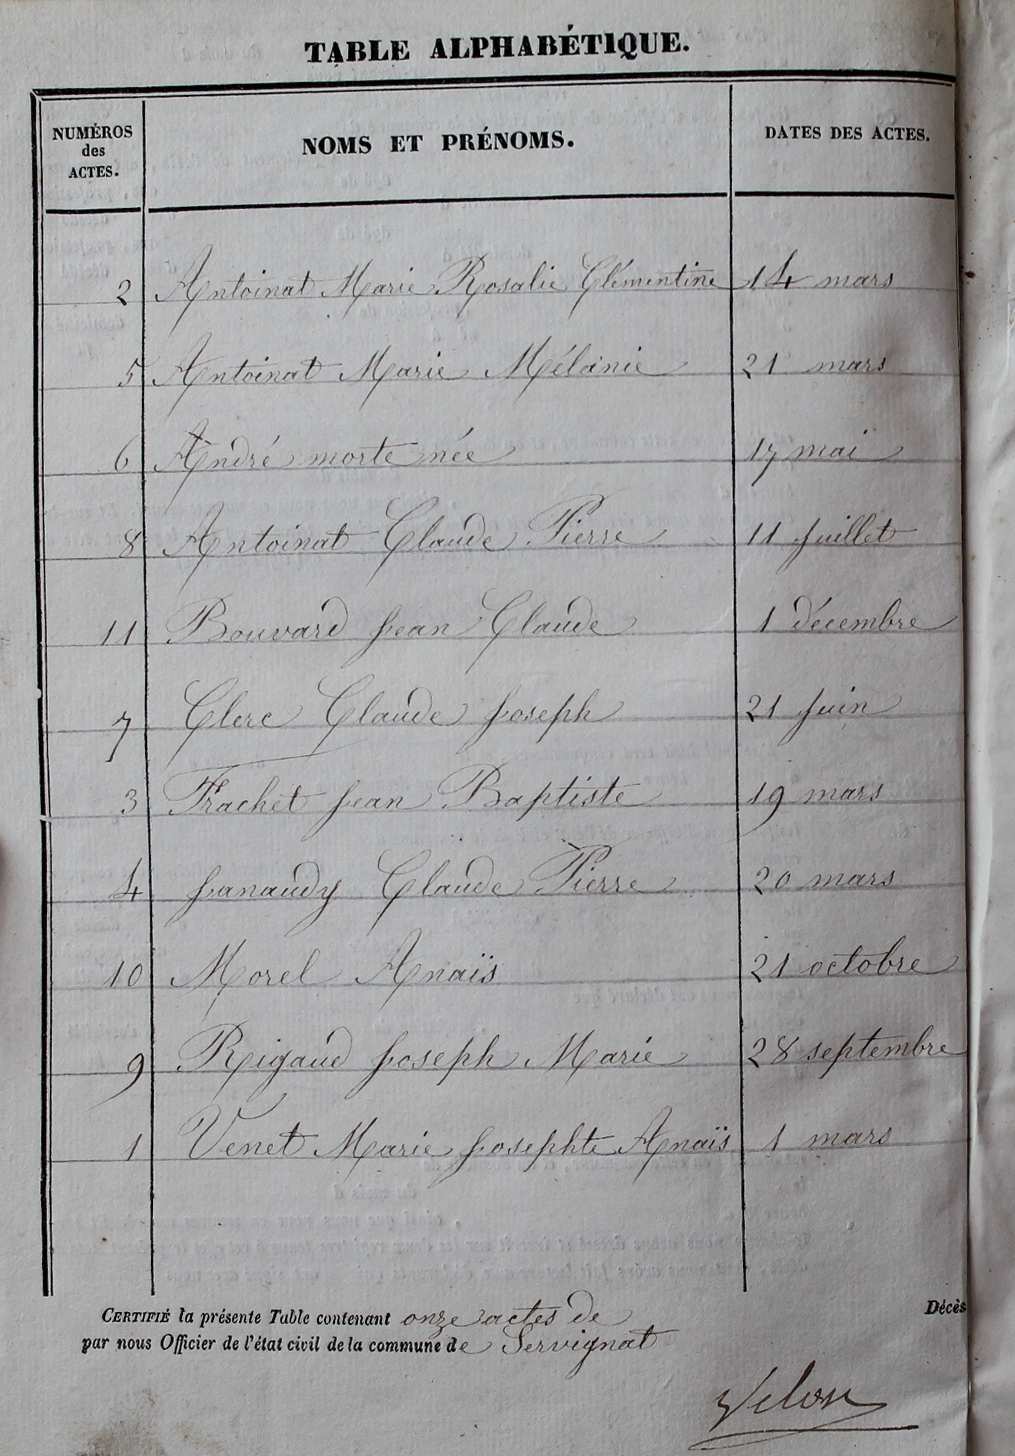 TABLE ALPHABÉTIQUE.
NUMÉROS des ACTES. NOMS ET PRÉNOMS. DATES DES ACTES.
2 Antoinat Marie Rosalie Clémentine 14 mars
5 Antoinat Marie Mélanie 21 mars
6 André morte née 17 mai
8 Antoinat Claude Pierre 11 juillet
11 Bouvard Jean Claude 1 décembre
7 Clerc Claude Joseph 21 juin
3 Frachet Jean Baptiste 19 mars
4 Janaudy Claude Pierre 20 mars
10 Morel Anaïs 21 octobre
9 Rigaud Joseph Marie 28 septembre
1 Venet Marie Josephte Anaïs 1 mars
CERTIFIÉ la présente Table contenant onze actes de Décès
par nous Officier de l'état civil de la commune de Servignat